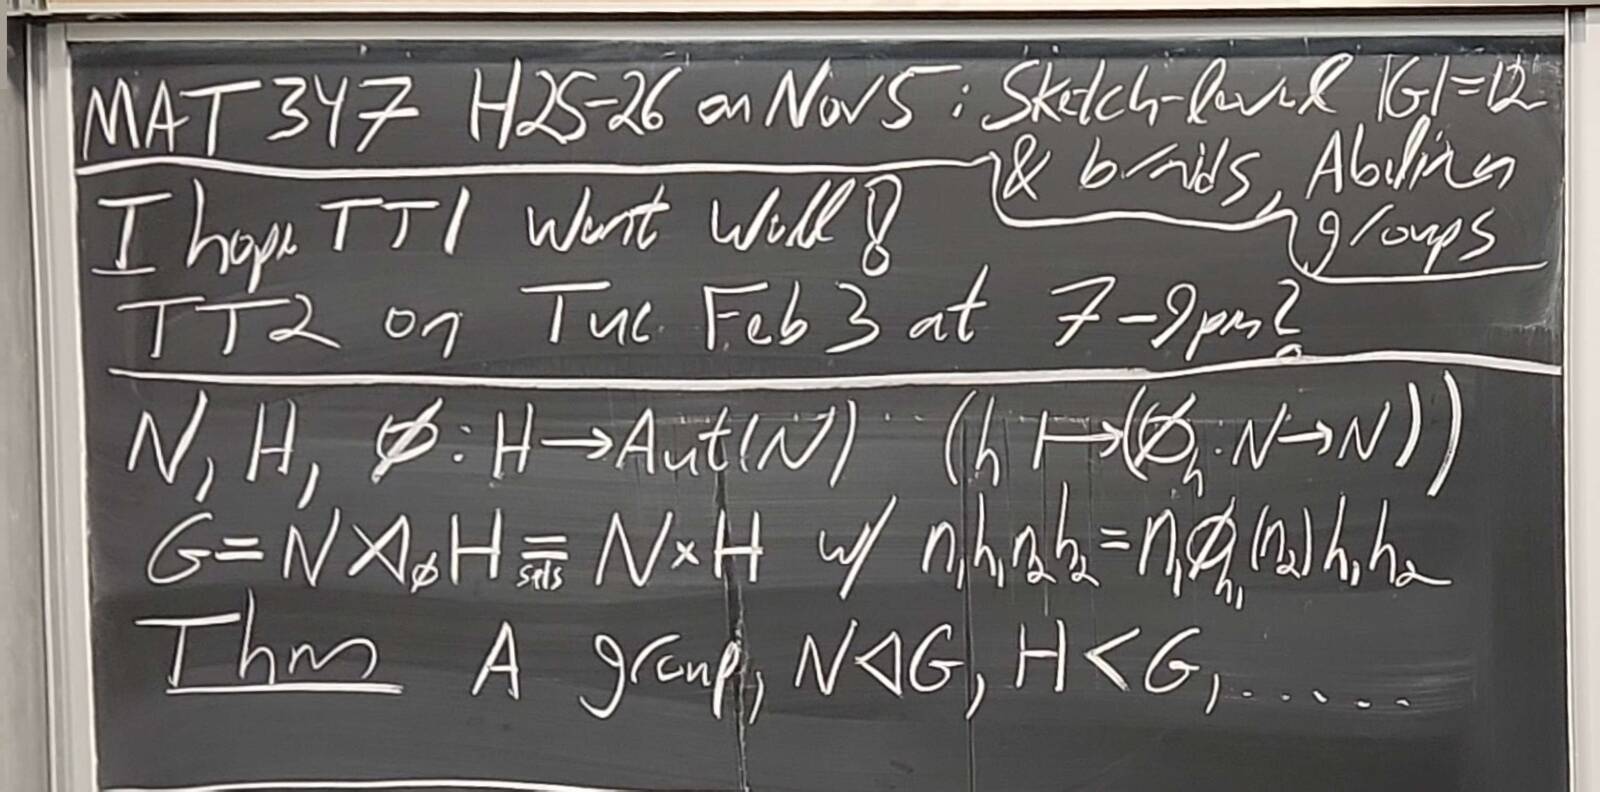 MAT 347 H25-26 on Nov 5: Sketch-level |G|=12
& braids, Abelian
groups
I hope TT1 went well!
TT2 on Tue Feb 3 at 7-9pm?
N, H, ϕ: H→Aut(N) (h ↦(ϕₕ: N→N))
G = N ⋊_ϕ H =_sets N×H w/ n₁h₁n₂h₂ = n₁ϕ_h₁(n₂)h₁h₂
Thm A group, N◁G, H<G, ......